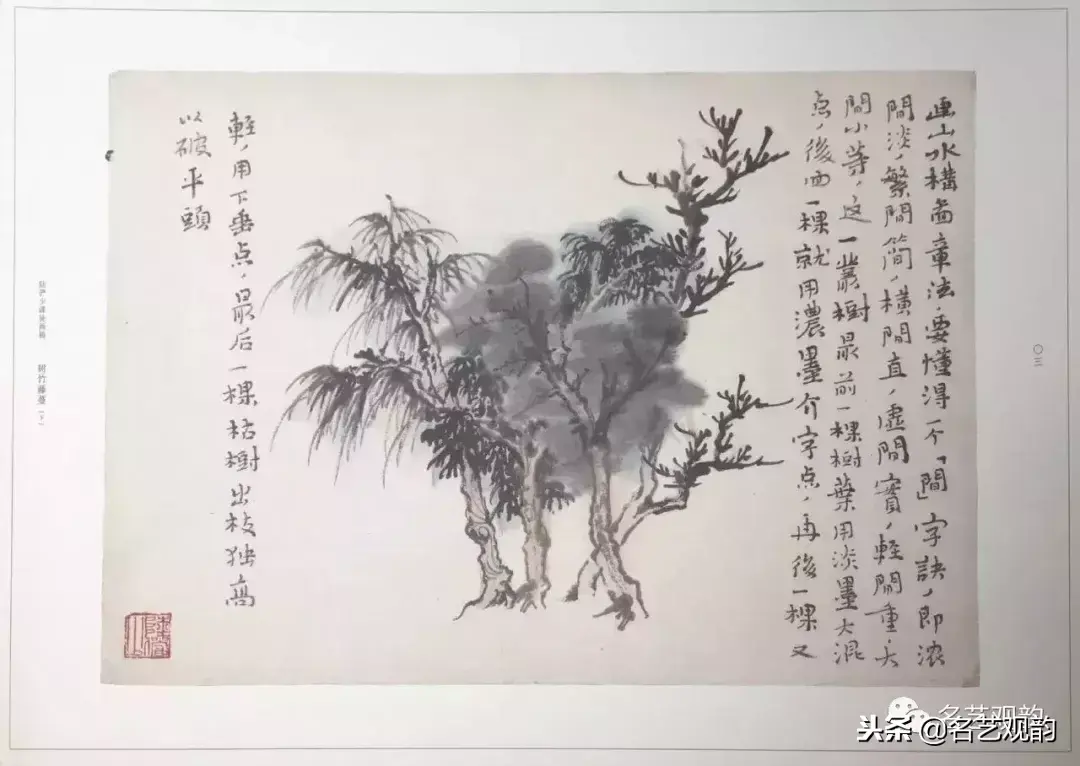 画山水構畵章法，要懂得一个「間」字訣，即浓
間淡，繁間简，橫間直，虛間實，軽間重，大
間小等，这一叢樹最前一棵樹葉用淡墨大混
点，後面一棵就用濃墨介字点，再後一棵又
軽，用下垂点，最后一棵枯樹出枝独高
以破平頭
陆俨少课徒画稿
树竹藤蔓
〇三
名艺观韵
头条@名艺观韵